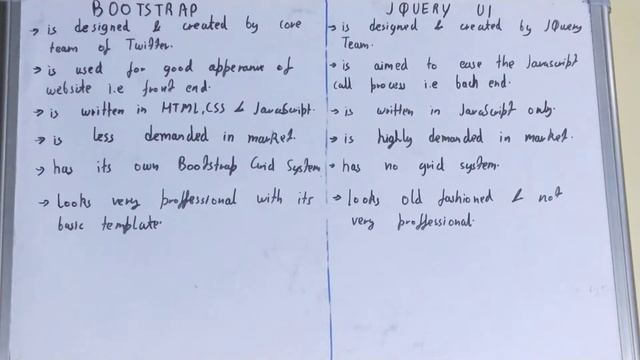 BOOTSTRAP
→ is designed & created by core
team of Twitter.
→ is used for good apperane of
website i.e front end.
→ is written in HTML, CSS & JavaScript.
→ is less demanded in market.
→ has its own Bootstrap Grid System
→ Looks very proffessional with its
basic template.
JQUERY UI
→ is designed & created by JQuery
Team.
→ is aimed to ease the Javascript
call process i.e back end.
→ is written in JavaScript only.
→ is highly demanded in market.
→ has no grid system.
→ looks old fashioned & not
very proffessional.